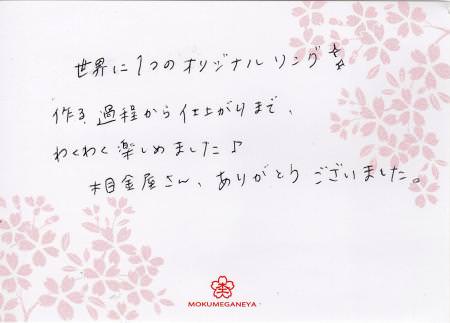 世界に1つのオリジナルリング☆☆
作る過程から仕上がりまで、
わくわく楽しめました♪
杢目金屋さん、ありがとうございました。
MOKUMEGANEYA